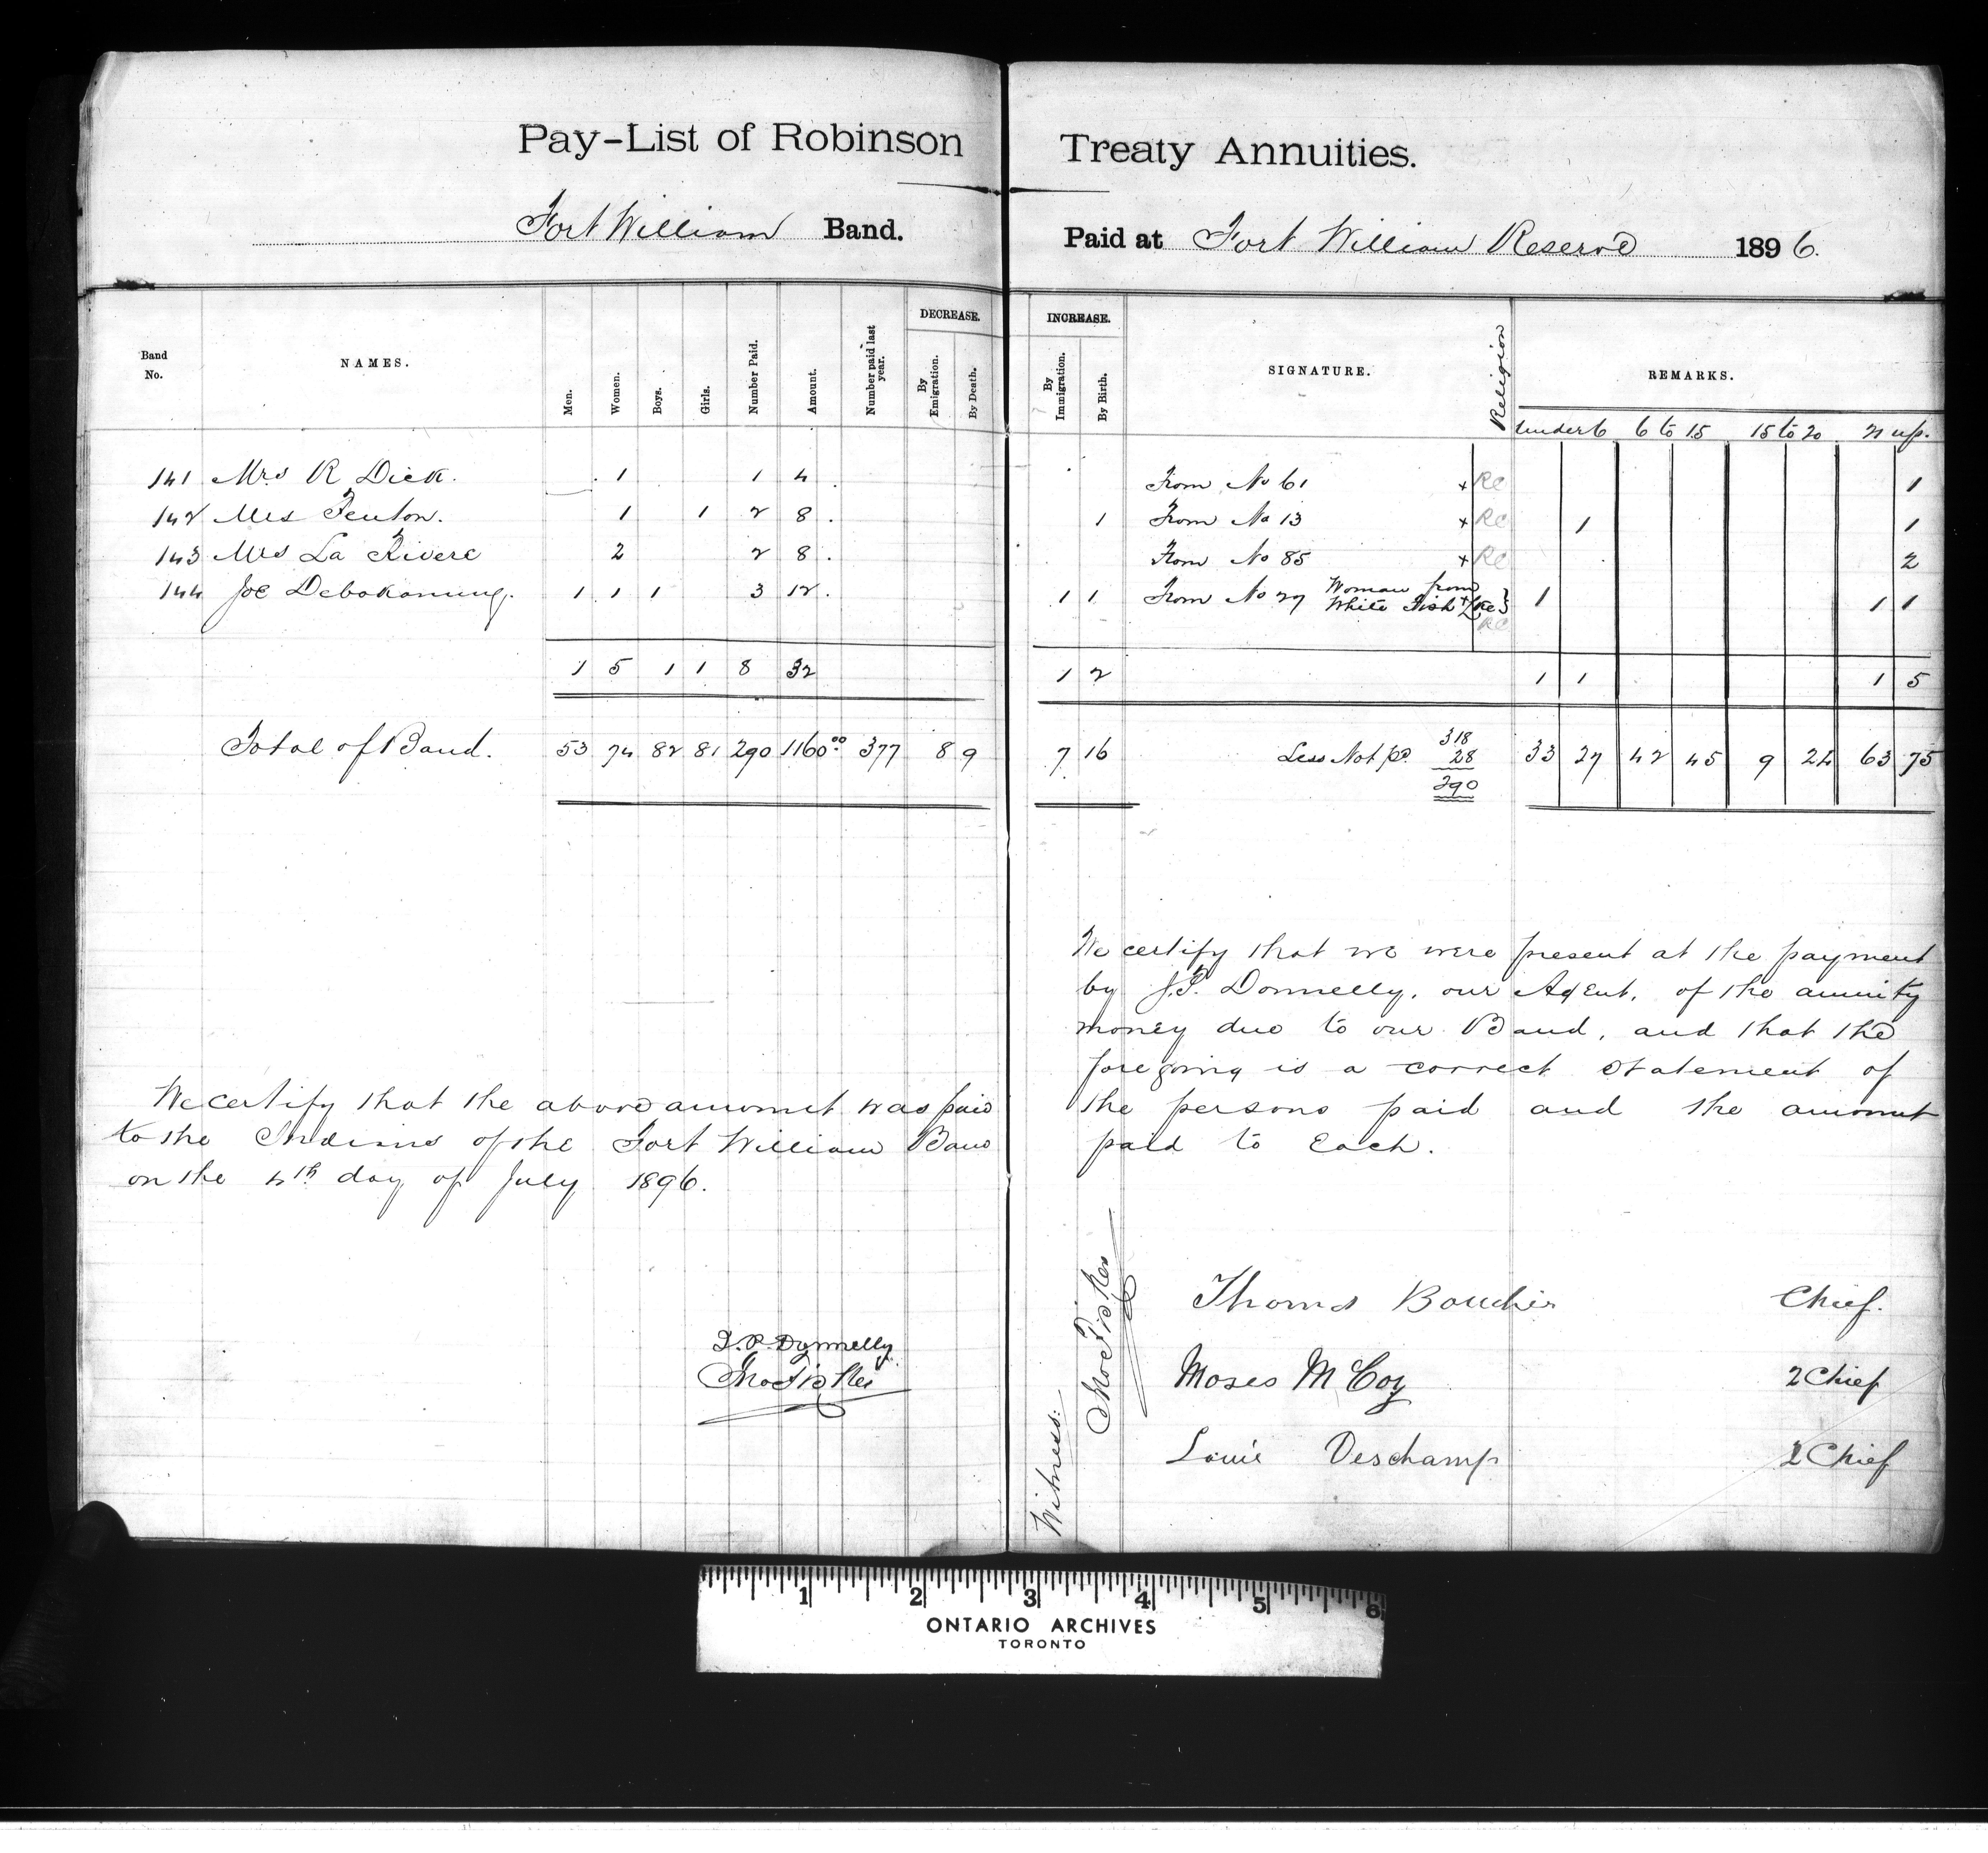 Pay-List of Robinson Treaty Annuities.
Fort William Band. Paid at Fort William Reserve 1896.
Band No. NAMES. Men. Women. Boys. Girls. Number Paid. Amount. Number paid last year. DECREASE. By Emigration. By Death. INCREASE. By Immigration. By Birth. SIGNATURE. Religion REMARKS.
under 6 6 to 15 15 to 20 21 up.
141 Mrs R Dick. 1 1 4 From No 61 + RC 1
142 Mrs Fenton. 1 1 2 8. 1 From No 13 + RC 1 1
143 Mrs La Rivere 2 2 8. From No 85 + RC 2
144 Joe Debakonung. 1 1 1 3 12. 1 1 From No 27 Woman from White Fish + Lke } 1 1 1
RC
1 5 1 1 8 32 1 2 1 1 1 5
Total of Band. 53 74 82 81 290 1160 00 377 8 9 7 16 Less Not pd. 318 33 27 42 45 9 24 63 75
28
290
We certify that the above amount was paid
to the Indians of the Fort William Band
on the 4th day of July 1896.
J. P. Donnelly
We certify that we were present at the payment
by J.P. Donnelly, our Agent, of the annuity
money due to our Band, and that the
foregoing is a correct statement of
the persons paid and the amount
paid to Each.
Witness:
Thomas Boucher Chief.
Moses McCoy 2 Chief
Louie Deschamp 2 Chief
1 2 3 4 5 6
ONTARIO ARCHIVES
TORONTO